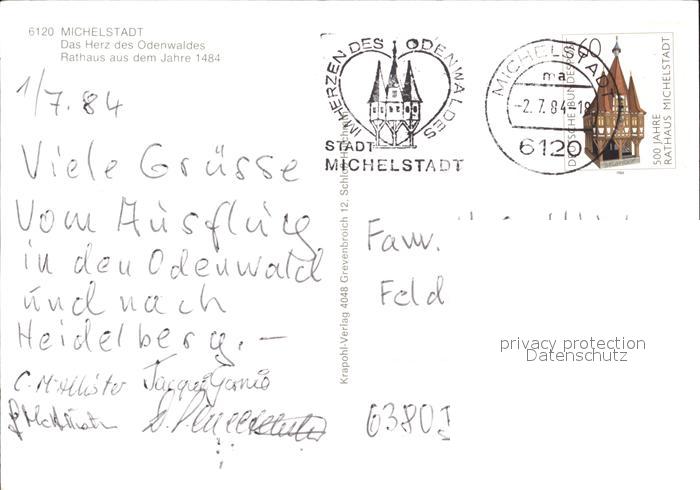 6120 MICHELSTADT
Das Herz des Odenwaldes
Rathaus aus dem Jahre 1484
1/7.84
Viele Grüsse
vom Ausflug
in den Odenwald
und nach
Heidelberg. –
IM HERZEN DES ODENWALDES
STADT
MICHELSTADT
MICHELSTADT
ma
-2.7.84-18
6120
60
DEUTSCHE BUNDESPOST
500 JAHRE
RATHAUS MICHELSTADT
Krapohl-Verlag 4048 Grevenbroich 12, Schloß
Fam.
Feld
privacy protection
Datenschutz
6380